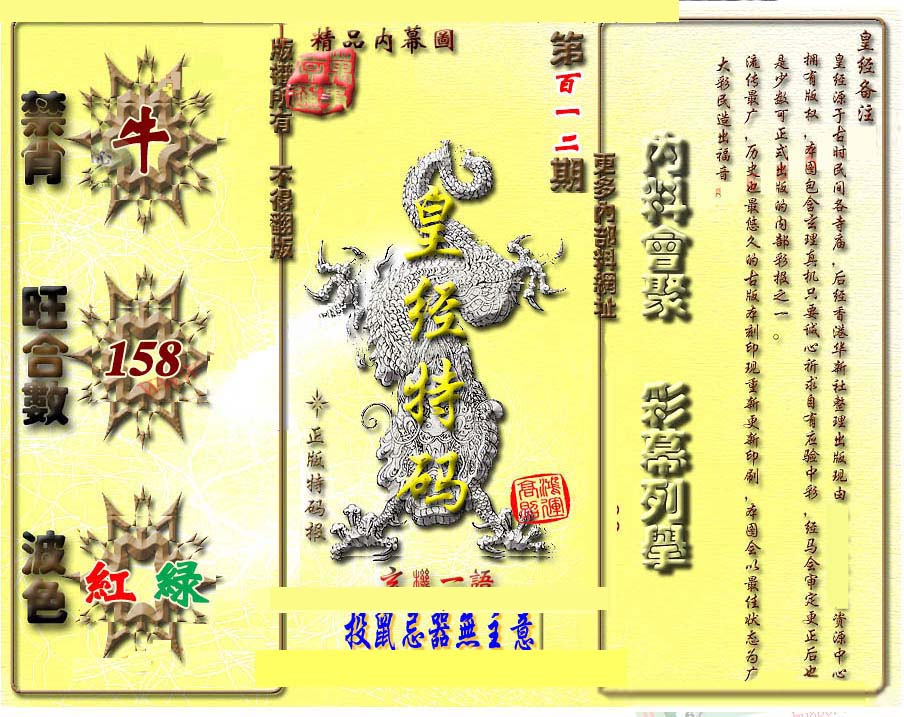 皇经备注
皇经源于古时民间各寺庙，后经香港华新社整理出版现由
资源中心
拥有版权，本图包含玄理真机只要诚心祈求自有应验中彩，经马会审定更正后也
是少数可正式出版的内部彩报之一。
流传最广，历史也最悠久的古版本刻印现重新更新印刷，本图会以最佳状态为广
大彩民造出福音
內料會聚
彩幕列舉
更多內部料網址
第百一二期
精品内幕圖
版權所有 不得翻版
皇经特码
正版特码报
鴻運高照
玄機一語
投鼠忌器無主意
禁肖
牛
旺合數
158
波色
紅 綠